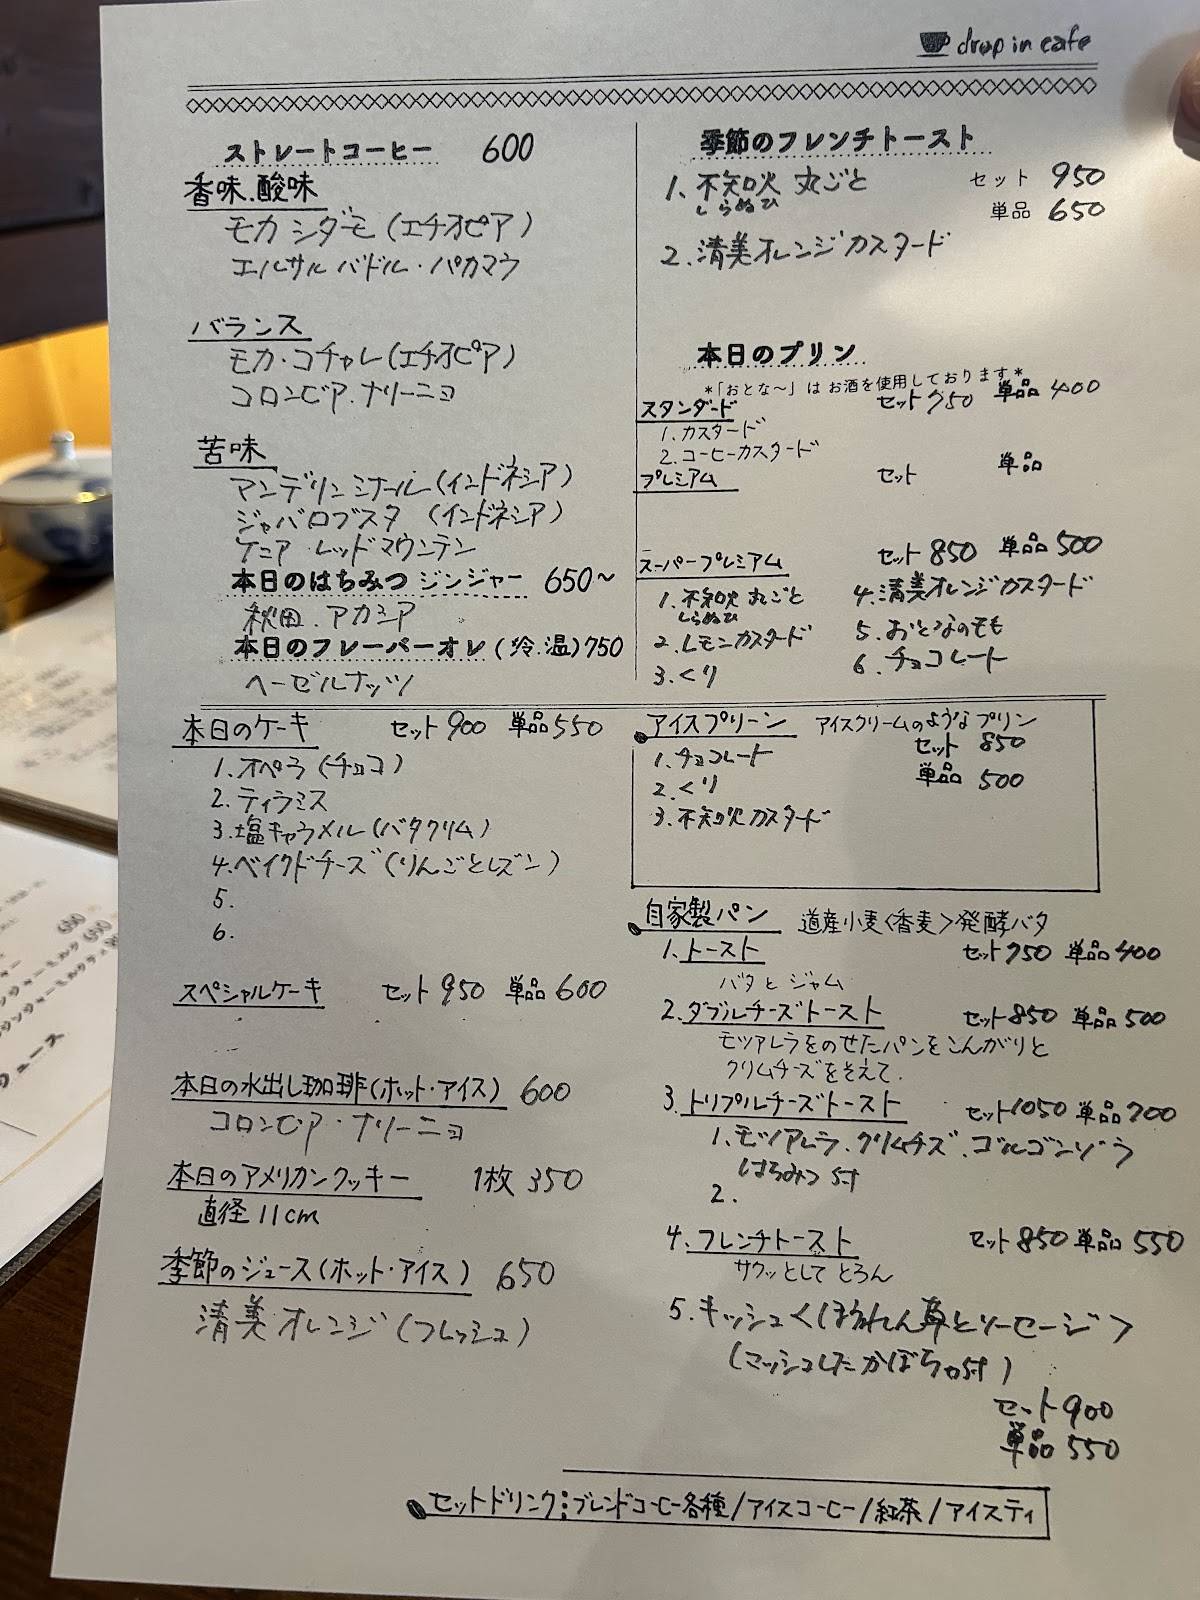 drop in cafe
ストレートコーヒー 600
香味.酸味
モカ シダモ (エチオピア)
エルサルバドル・パカマウ
バランス
モカ・コチャレ (エチオピア)
コロンビア.ナリーニョ
苦味
マンデリン ミナール (インドネシア)
ジャバロブスタ (インドネシア)
ケニア レッドマウンテン
本日のはちみつ ジンジャー 650〜
秋田.アカシア
本日のフレーバーオレ (冷.温) 750
ヘーゼルナッツ
季節のフレンチトースト
1、不知火 丸ごと セット 950
しらぬひ 単品 650
2.清美オレンジカスタード
本日のプリン
*「おとな〜」は お酒を使用しております*
スタンダード セット 750 単品 400
1.カスタード
2.コーヒーカスタード
プレミアム セット 単品
スーパープレミアム セット 850 単品 500
1.不知火 丸ごと
しらぬひ
2.レモンカスタード
3.くり
4.清美オレンジカスタード
5.おとなのモモ
6.チョコレート
本日のケーキ セット 900 単品 550
1.オペラ (チョコ)
2.ティラミス
3.塩キャラメル (バタクリム)
4.ベイクドチーズ (りんごとレズン)
5.
6.
スペシャルケーキ セット 950 単品 600
本日の水出し珈琲 (ホット・アイス) 600
コロンビア・ナリーニョ
本日のアメリカンクッキー 1枚 350
直径 11cm
季節のジュース (ホット・アイス) 650
清美オレンジ (フレッシュ)
アイスプリーン アイスクリームのようなプリン
セット 850
単品 500
1.チョコレート
2.くり
3.不知火カスタード
自家製パン 道産小麦<香麦>発酵バタ
1.トースト セット 750 単品 400
バタと ジャム
2.ダブルチーズトースト セット 850 単品 500
モツアレラをのせたパンをこんがりと
クリムチーズをそえて.
3.トリプルチーズトースト セット 1050 単品 700
1.モツアレラ.クリムチズ.ゴルゴンゾラ
はちみつ 付
2.
4.フレンチトースト セット 850 単品 550
サクッとして とろん
5.キッシュ<ほうれん草とソーセージ>
(マッシュしたかぼちゃ付)
セット 900
単品 550
セットドリンク:ブレンドコーヒー各種/アイスコーヒー/紅茶/アイスティ